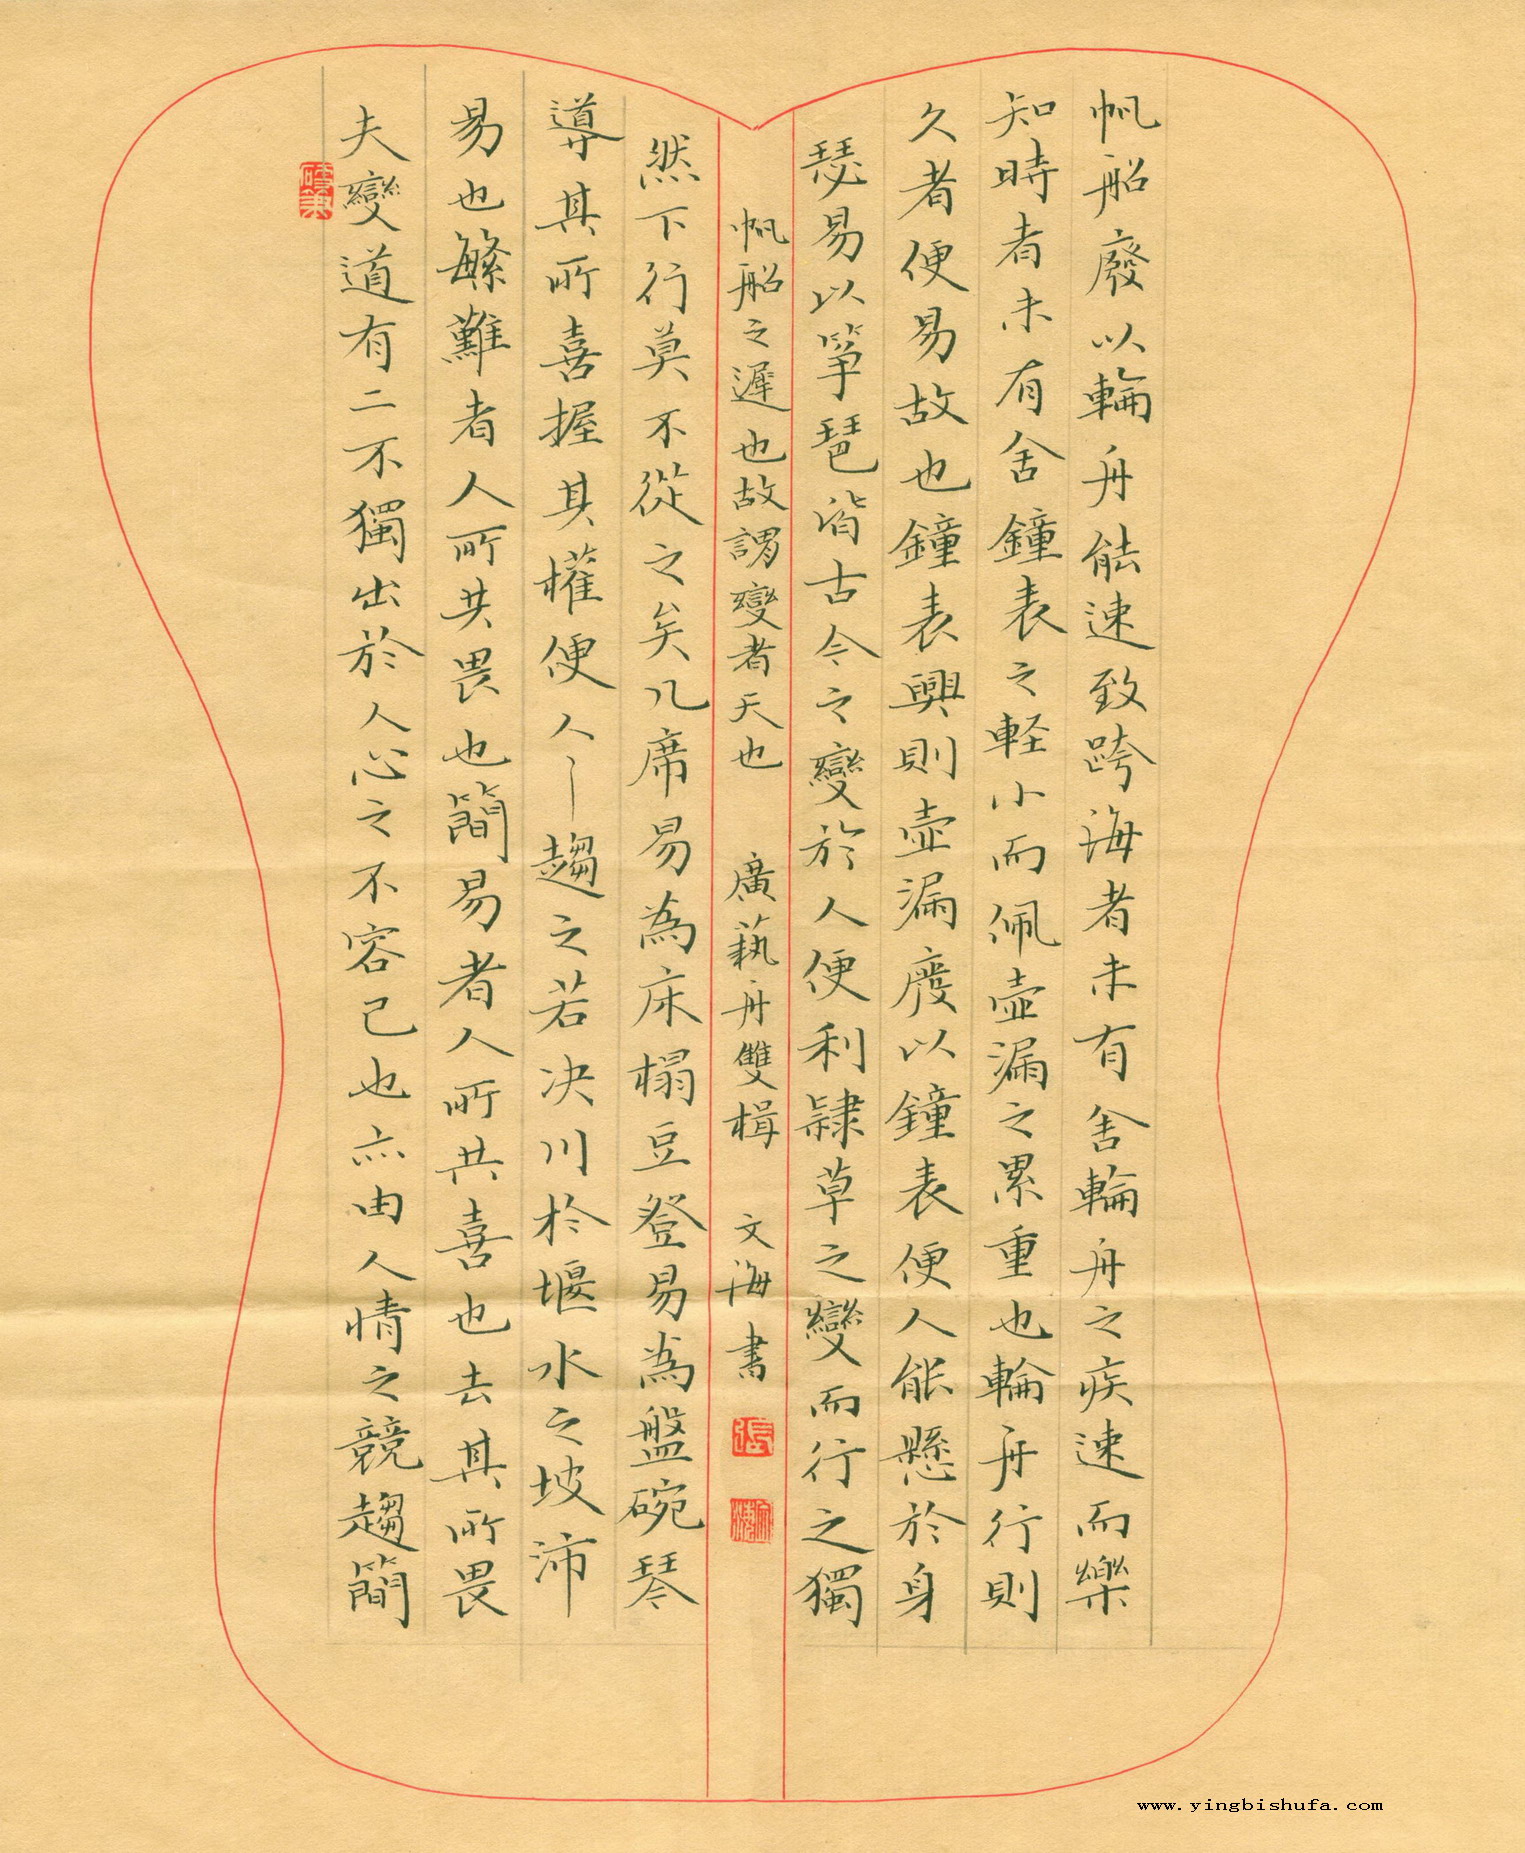 夫變道有二不獨出於人心之不容已也亦由人情之競趨簡
易也繁難者人所共畏也簡易者人所共喜也去其所畏
導其所喜握其權便人趨之若決川於堰水之坡沛
然下行莫不從之矣几席易為床榻豆登易為盤碗琴
瑟易以箏琶皆古今之變於人便利隸草之變而行之獨
久者便易故也鐘表興則壺漏廢以鐘表便人能懸於身
知時者未有舍鐘表之軽小而佩壺漏之累重也輪舟行則
帆船廢以輪舟能速致跨海者未有舍輪舟之疾速而樂
帆船之遲也故謂變者天也 廣藝舟雙楫 文海書
張
www.yingbishufa.com